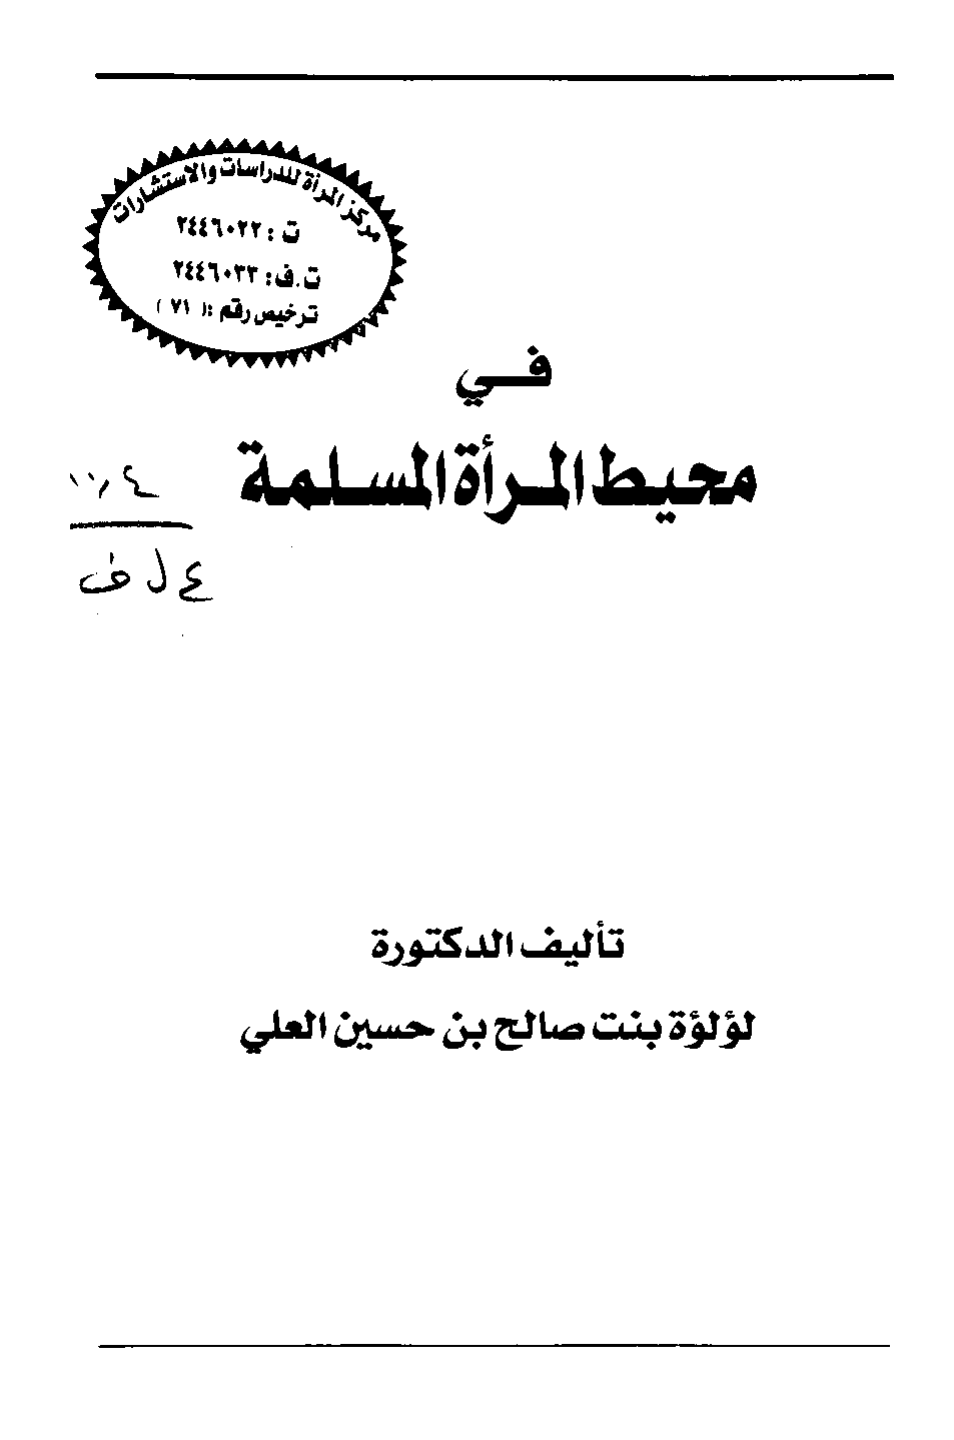 مركز المرأة للدراسات والاستشارات
ت : ٢٤٤٦٠٢٢
ت.ف: ٢٤٤٦٠٣٣
ترخيص رقم :( ٧١ )
في
محيط المرأة المسلمة
ع ل ف
تأليف الدكتورة
لؤلؤة بنت صالح بن حسين العلي